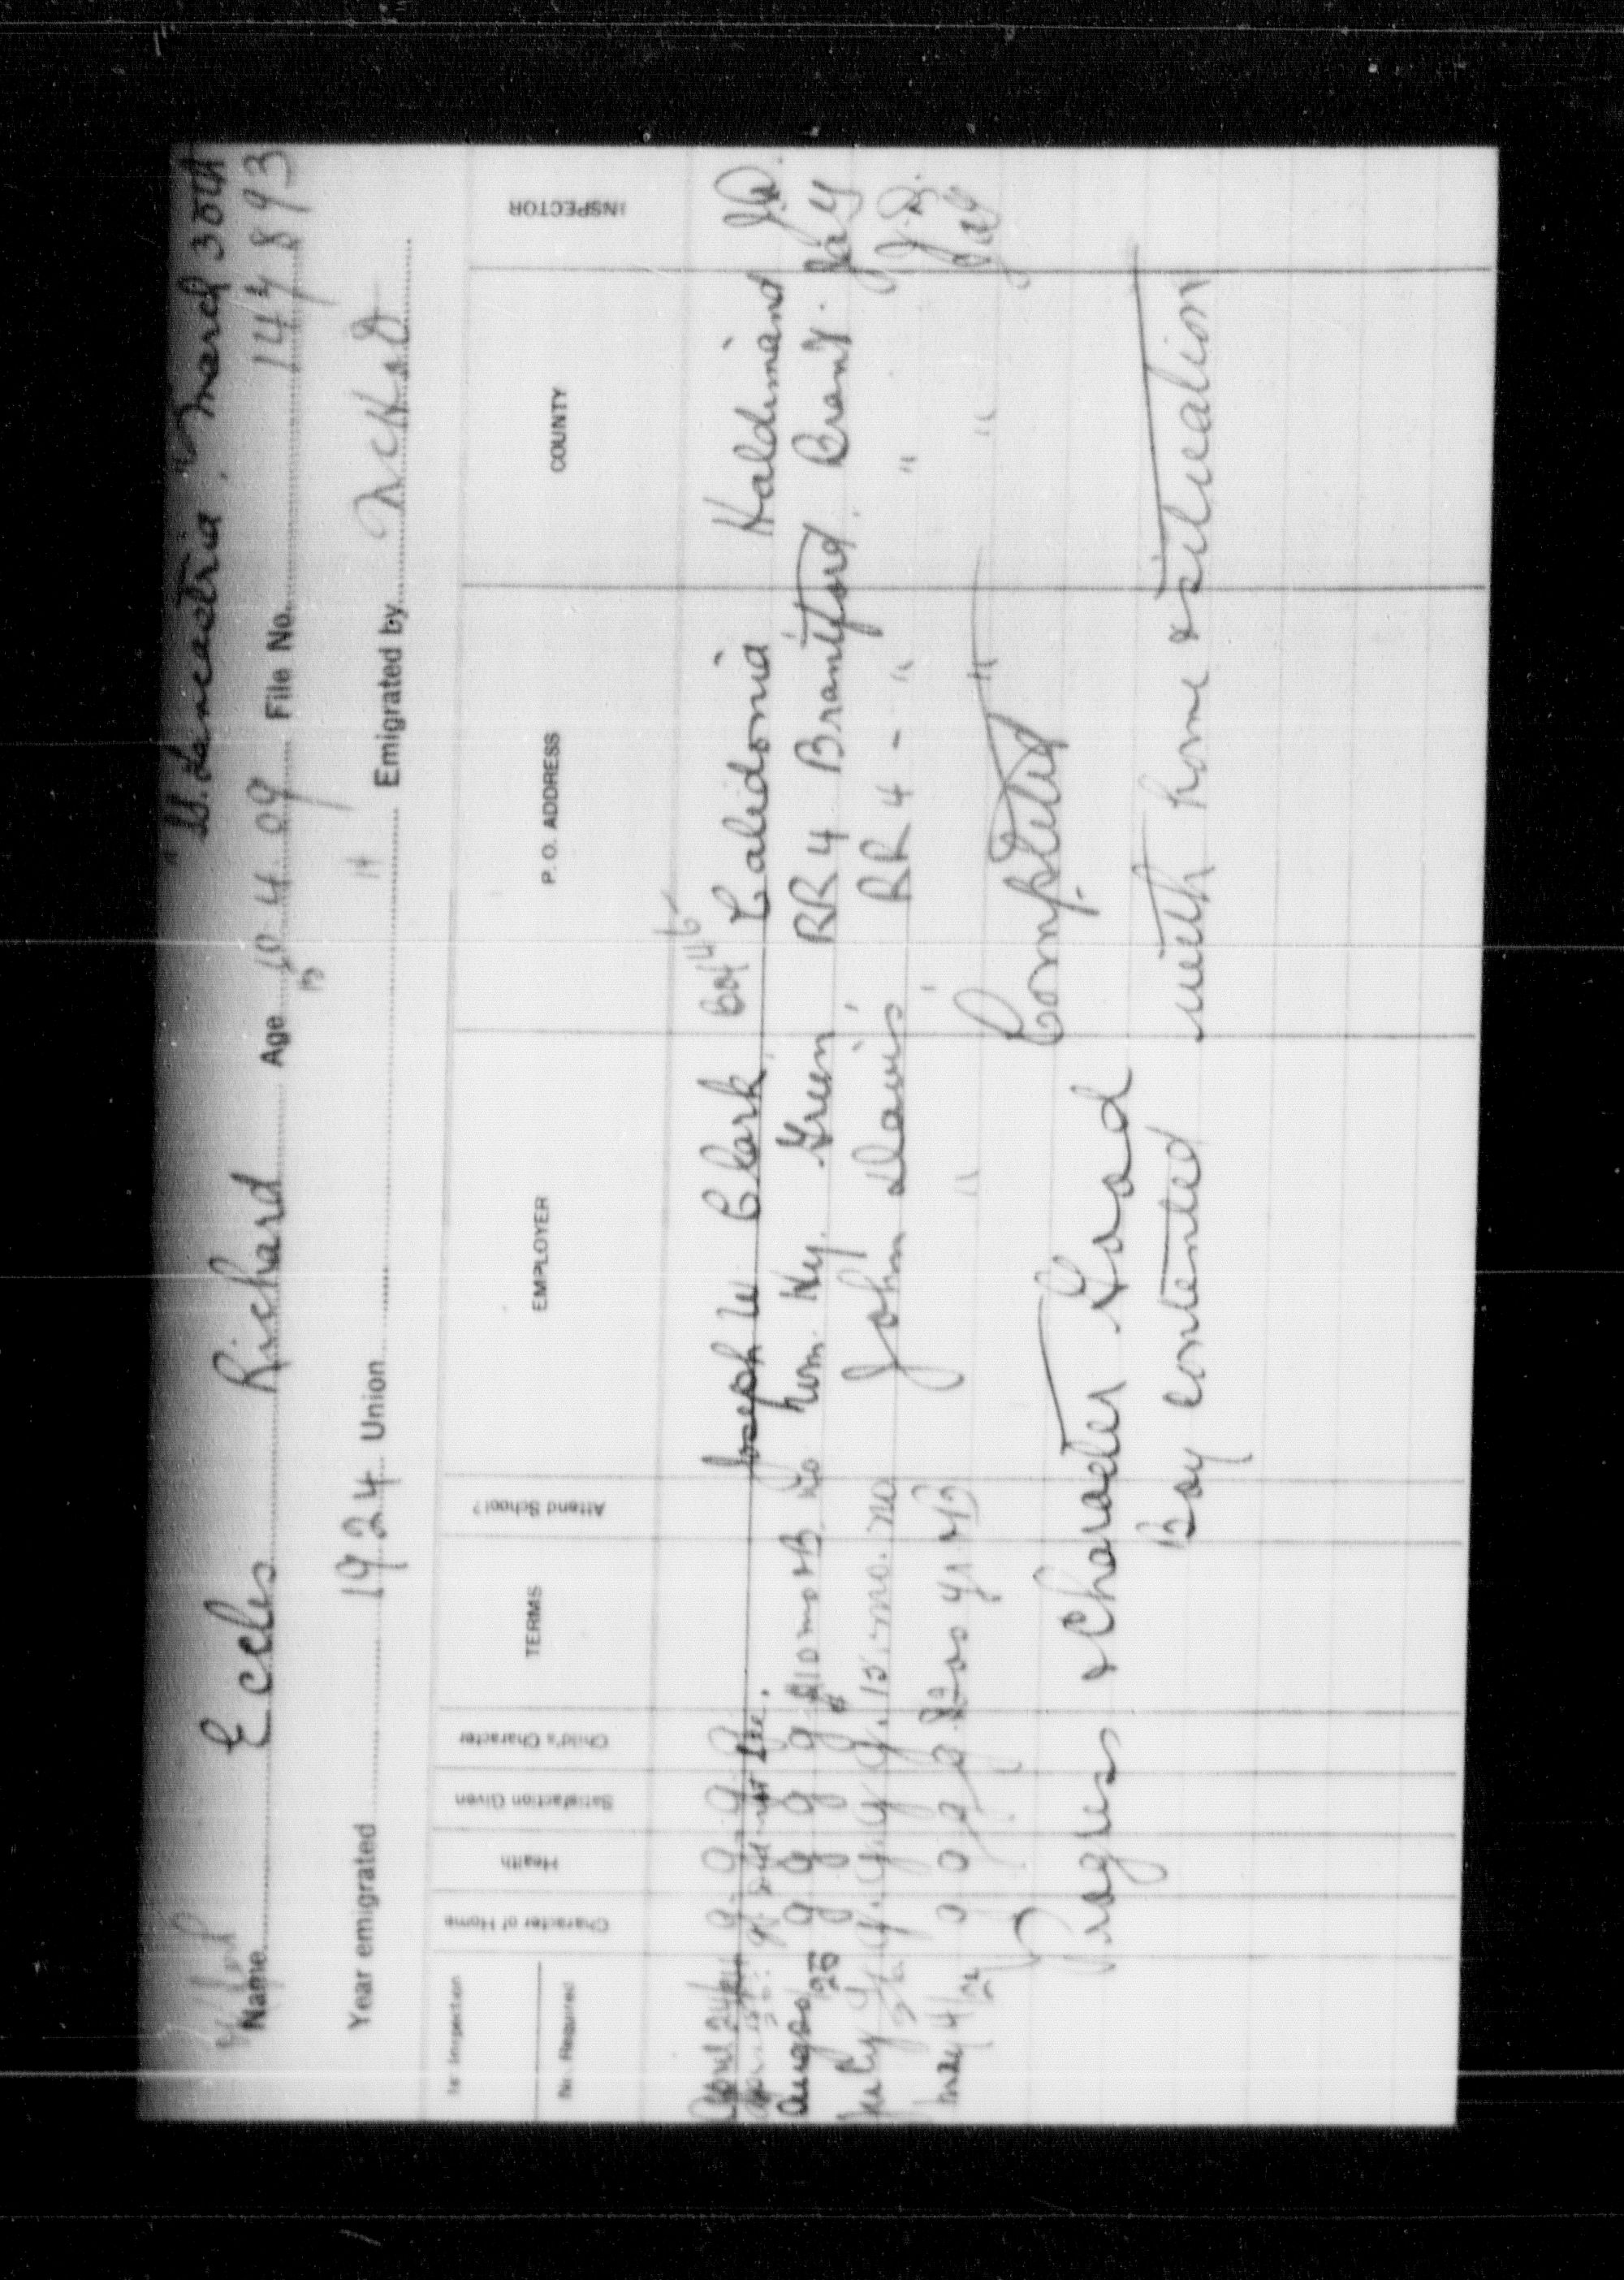 "S.S. Lancastria" March 30th
Name Eccles Richard Age 10 4 09 File No. 147893
13
14
Year emigrated 1924 Union Emigrated by N.C.H.&O
INSPECTOR
1st Inspection Character of Home Health Satisfaction Given Child's Character TERMS Attend School? EMPLOYER P. O. ADDRESS COUNTY
No. Required
April 24/24 g. g. g. g. Joseph W Clark Caledonia Haldimand J.D.
g. did not see.
Aug 20/25 g g g g $10 mo & B no Wm. Hy. Green RR 4 Brantford. Brant.
July g. g. g. g. 15. mo. no John Davis RR 4 - " "
May 4 g g g g 200 yr & B " " "
Completed
Progress & Character Good
Boy contented with home & situation